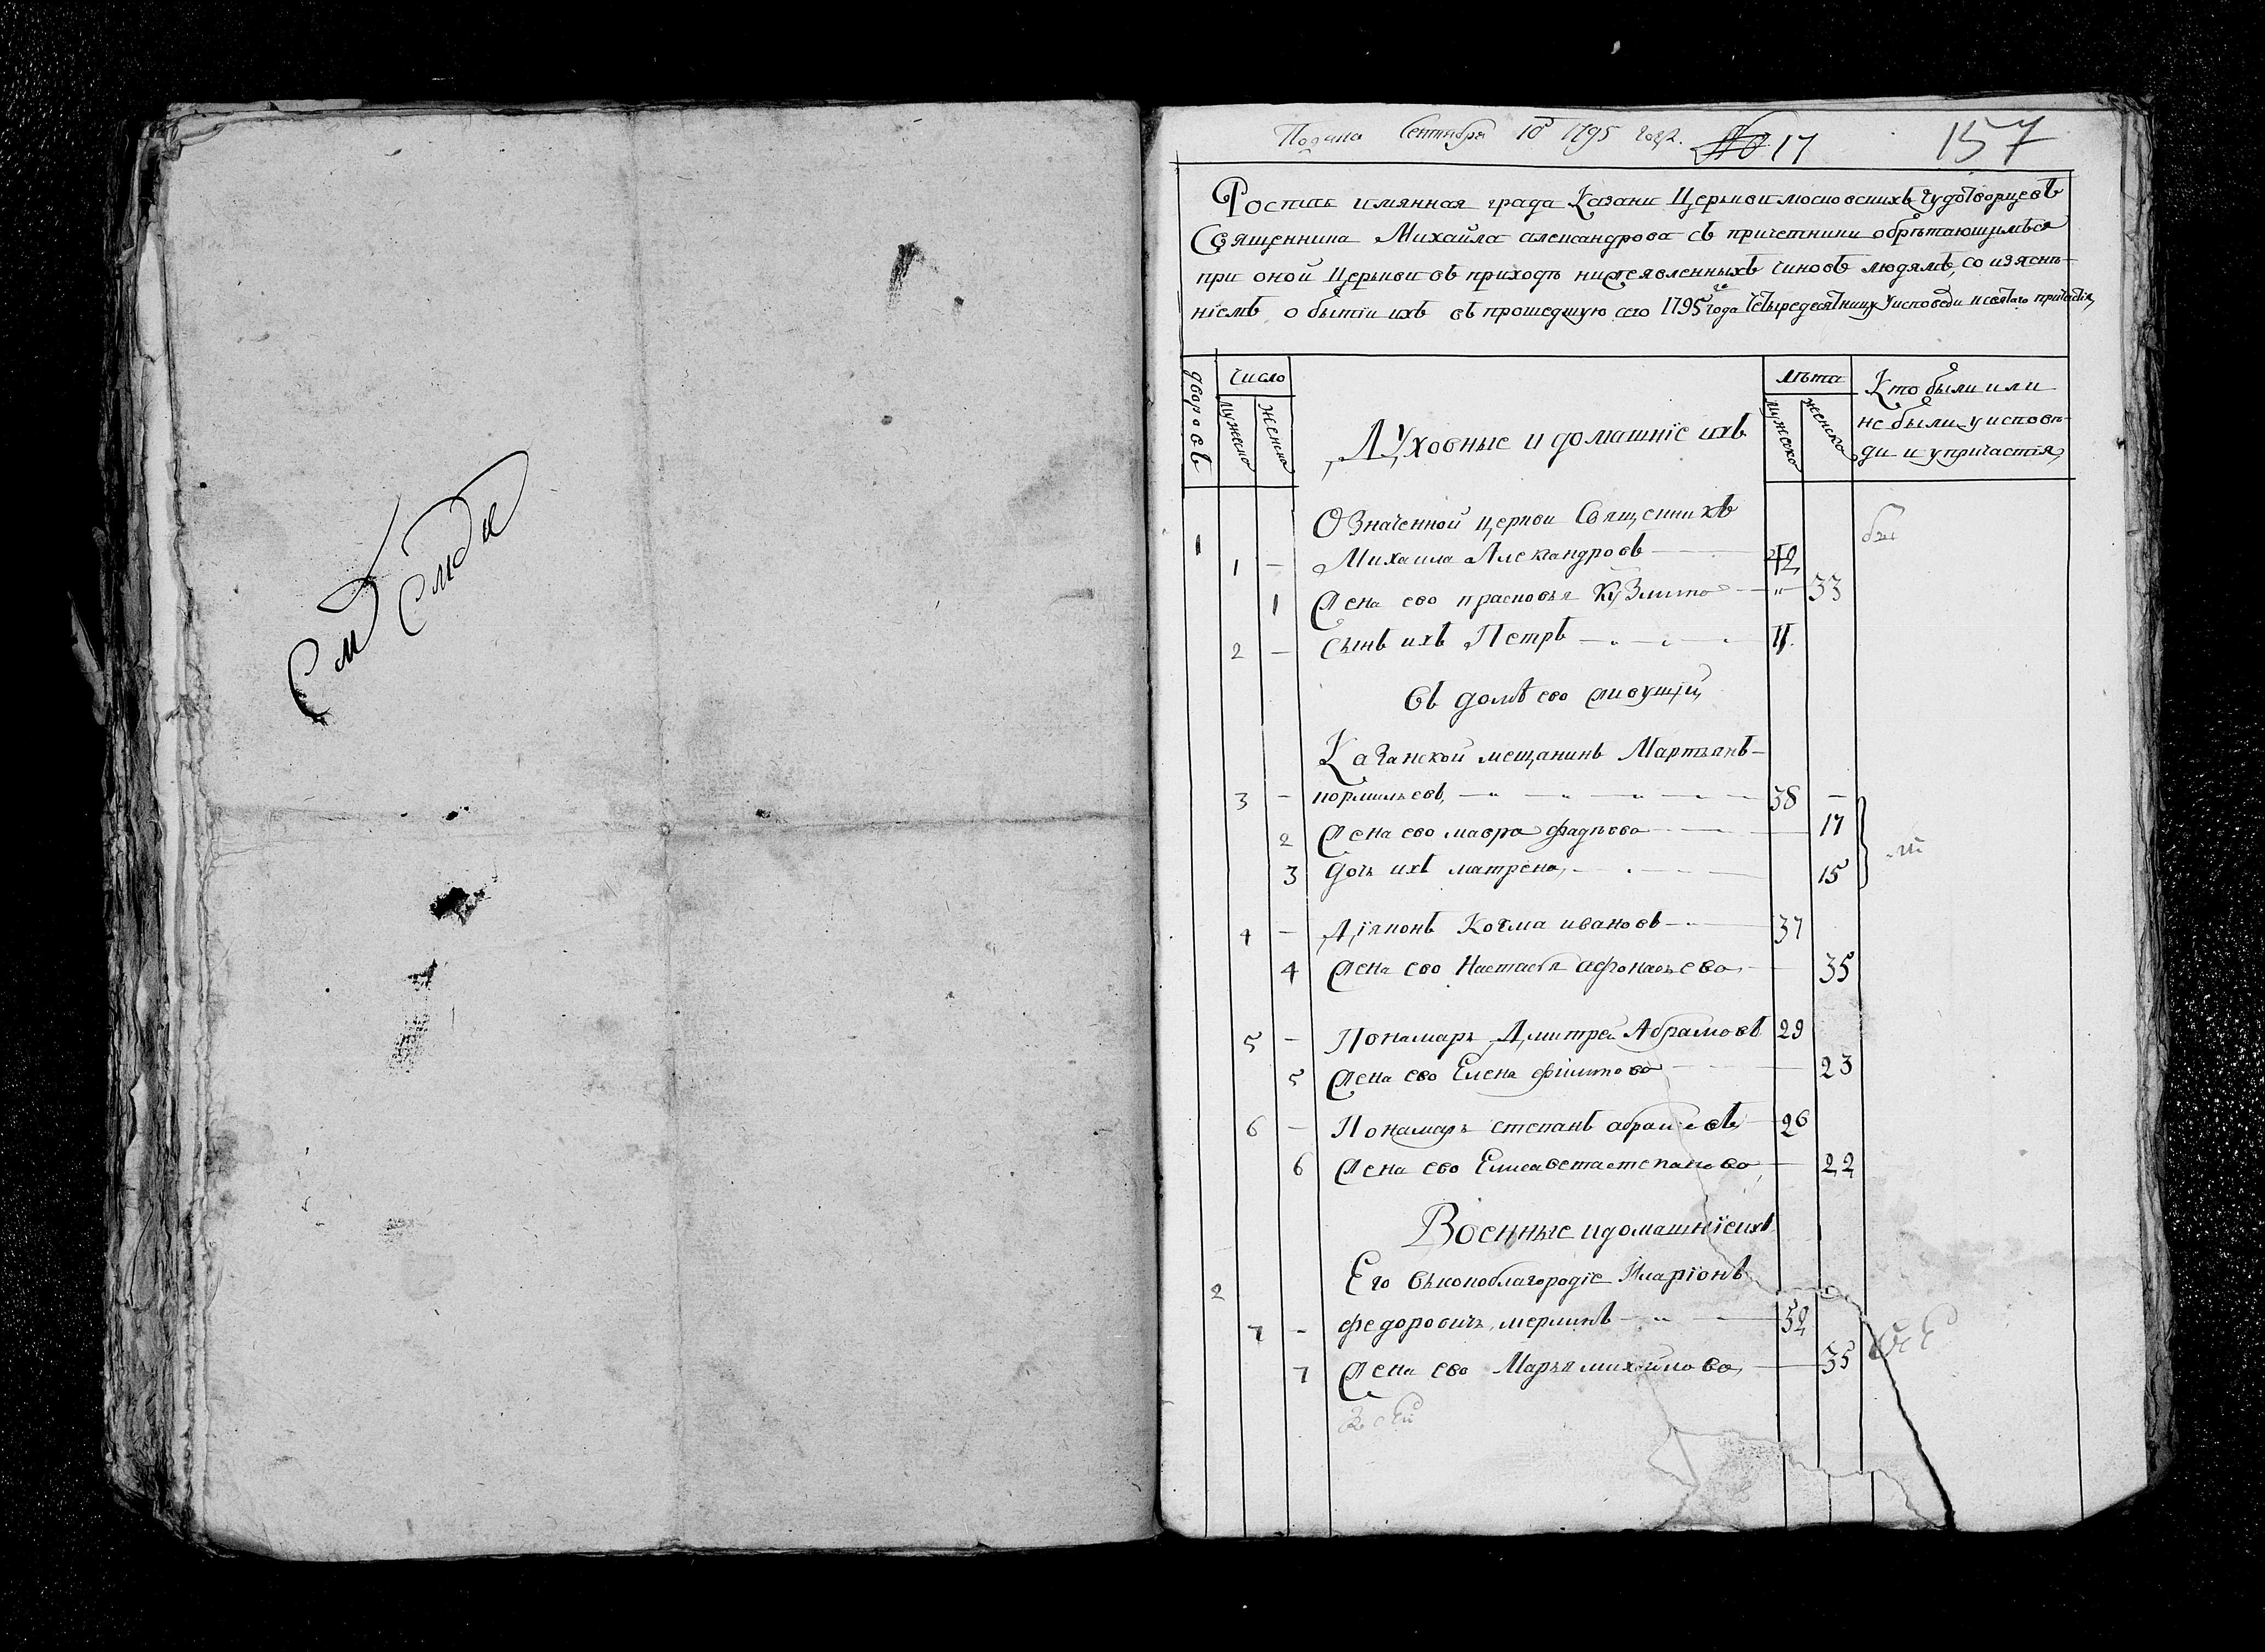 Подана Сентября 10 1795 года. № 17
157
Роспись имянная града Казани Церькви московскихъ Чудотворцевъ
Священника Михаила александрова съ причетники обрѣтающимъся
при оной Церькви въ приходѣ нижеявленныхъ чиновъ людямъ, со изъясне-
ніемъ о бытіи ихъ въ прошедшую сего 1795 года Четыредесятницу У исповеди и святаго причастія,
дворовъ
Число
мужеска
женска
Духовные и домашніе ихъ
лѣта
мужеска
женска
Кто были или
не были у исповѣ-
ди и у причастія,
Означенной церкви Священникъ
1
1 - Михаила Александровъ 42
1 Жена ево прасковья Кузмина 33
2 - Сынъ ихъ Петръ 11.
Въ домѣ ево живущіи
Казанской мещанинъ Мартьянъ
3 - кормильевъ, 38 -
2 Жена ево мавра фадѣева 17
3 дочь ихъ матрена, 15
4 - Дїяконъ Козма ивановъ 37
4 Жена ево Настасья афонасьева, 35
5 - Пономарь Дмитрей Абрамовъ 29
5 Жена ево Елена филипова 23
6 - Пономарь степанъ абрамовъ 26
6 Жена ево Елисавета степанова 22
Военные и домашнїе ихъ
2 Его высокоблагородїе Иларїонъ
7 - федоровичь, мерлинъ 52
7 Жена ево Марья михайлова, 35